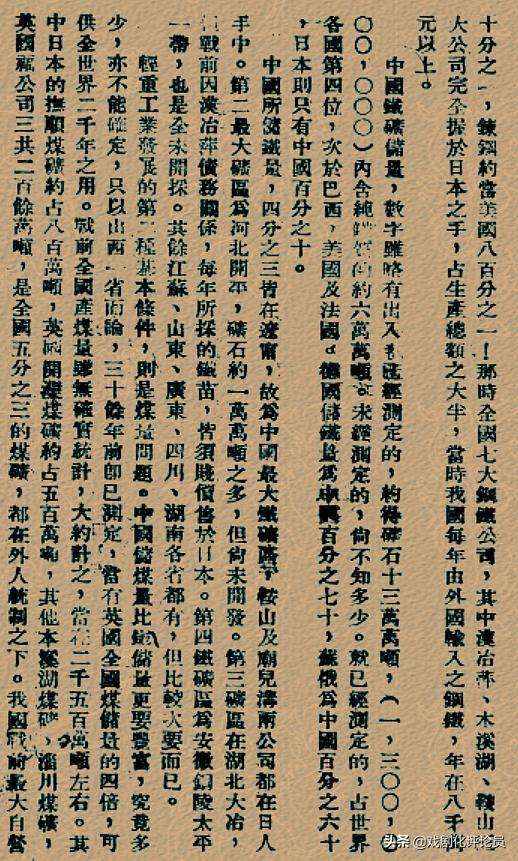 十分之一，鍊鋼約當美國八百分之一！那時全國七大鋼鐵公司，其中漢冶萍、本溪湖、鞍山三
大公司完全握於日本之手，占生產總額之大半，當時我國每年由外國輸入之鋼鐵，年在八千萬
元以上。
中國鐵礦儲量，數字雖略有出入，已經測定的，約得礦石十三萬萬噸，（一，三〇〇，〇
〇〇，〇〇〇）內含純鐵約六萬萬噸。未經測定的，尙不知多少。就已經測定的，占世界
各國第四位，次於巴西，美國及法國。德國儲鐵量爲中國百分之七十，蘇俄爲中國百分之六十
，日本則只有中國百分之十。
中國所儲鐵量，四分之三皆在遼甯，故爲中國最大鐵礦區，鞍山及廟兒溝兩公司都在日人
手中。第二最大礦區爲河北開平，礦石約一萬萬噸之多，但尙未開發。第三礦區在湖北大冶，
但戰前因漢冶萍債務關係，每年所採的鐵苗，皆須賤價售於日本。第四鐵礦區爲安徽銅陵太平
一帶，也是全未開採。其餘江蘇、山東、廣東、四川、湖南各省都有，但比較次要而已。
輕重工業發展的第二種基本條件，則是煤量問題。中國儲煤量比鐵儲量更要豐富，究竟多
少，亦不能確定，只以山西一省而論，三十餘年前卽已測定，當有英國全國煤儲量的四倍，可
供全世界二千年之用。戰前全國產煤量雖無確實統計，大約計之，當在二千五百萬噸左右。其
中日本的撫順煤礦約占八百萬噸，英國開灤煤礦約占五百萬噸，其他本溪湖煤礦，淄川煤礦，
英國福公司三共二百餘萬噸，是全國五分之三的煤礦，都在外人統制之下。我國戰前最大自營
头条 @戏剧化评论员